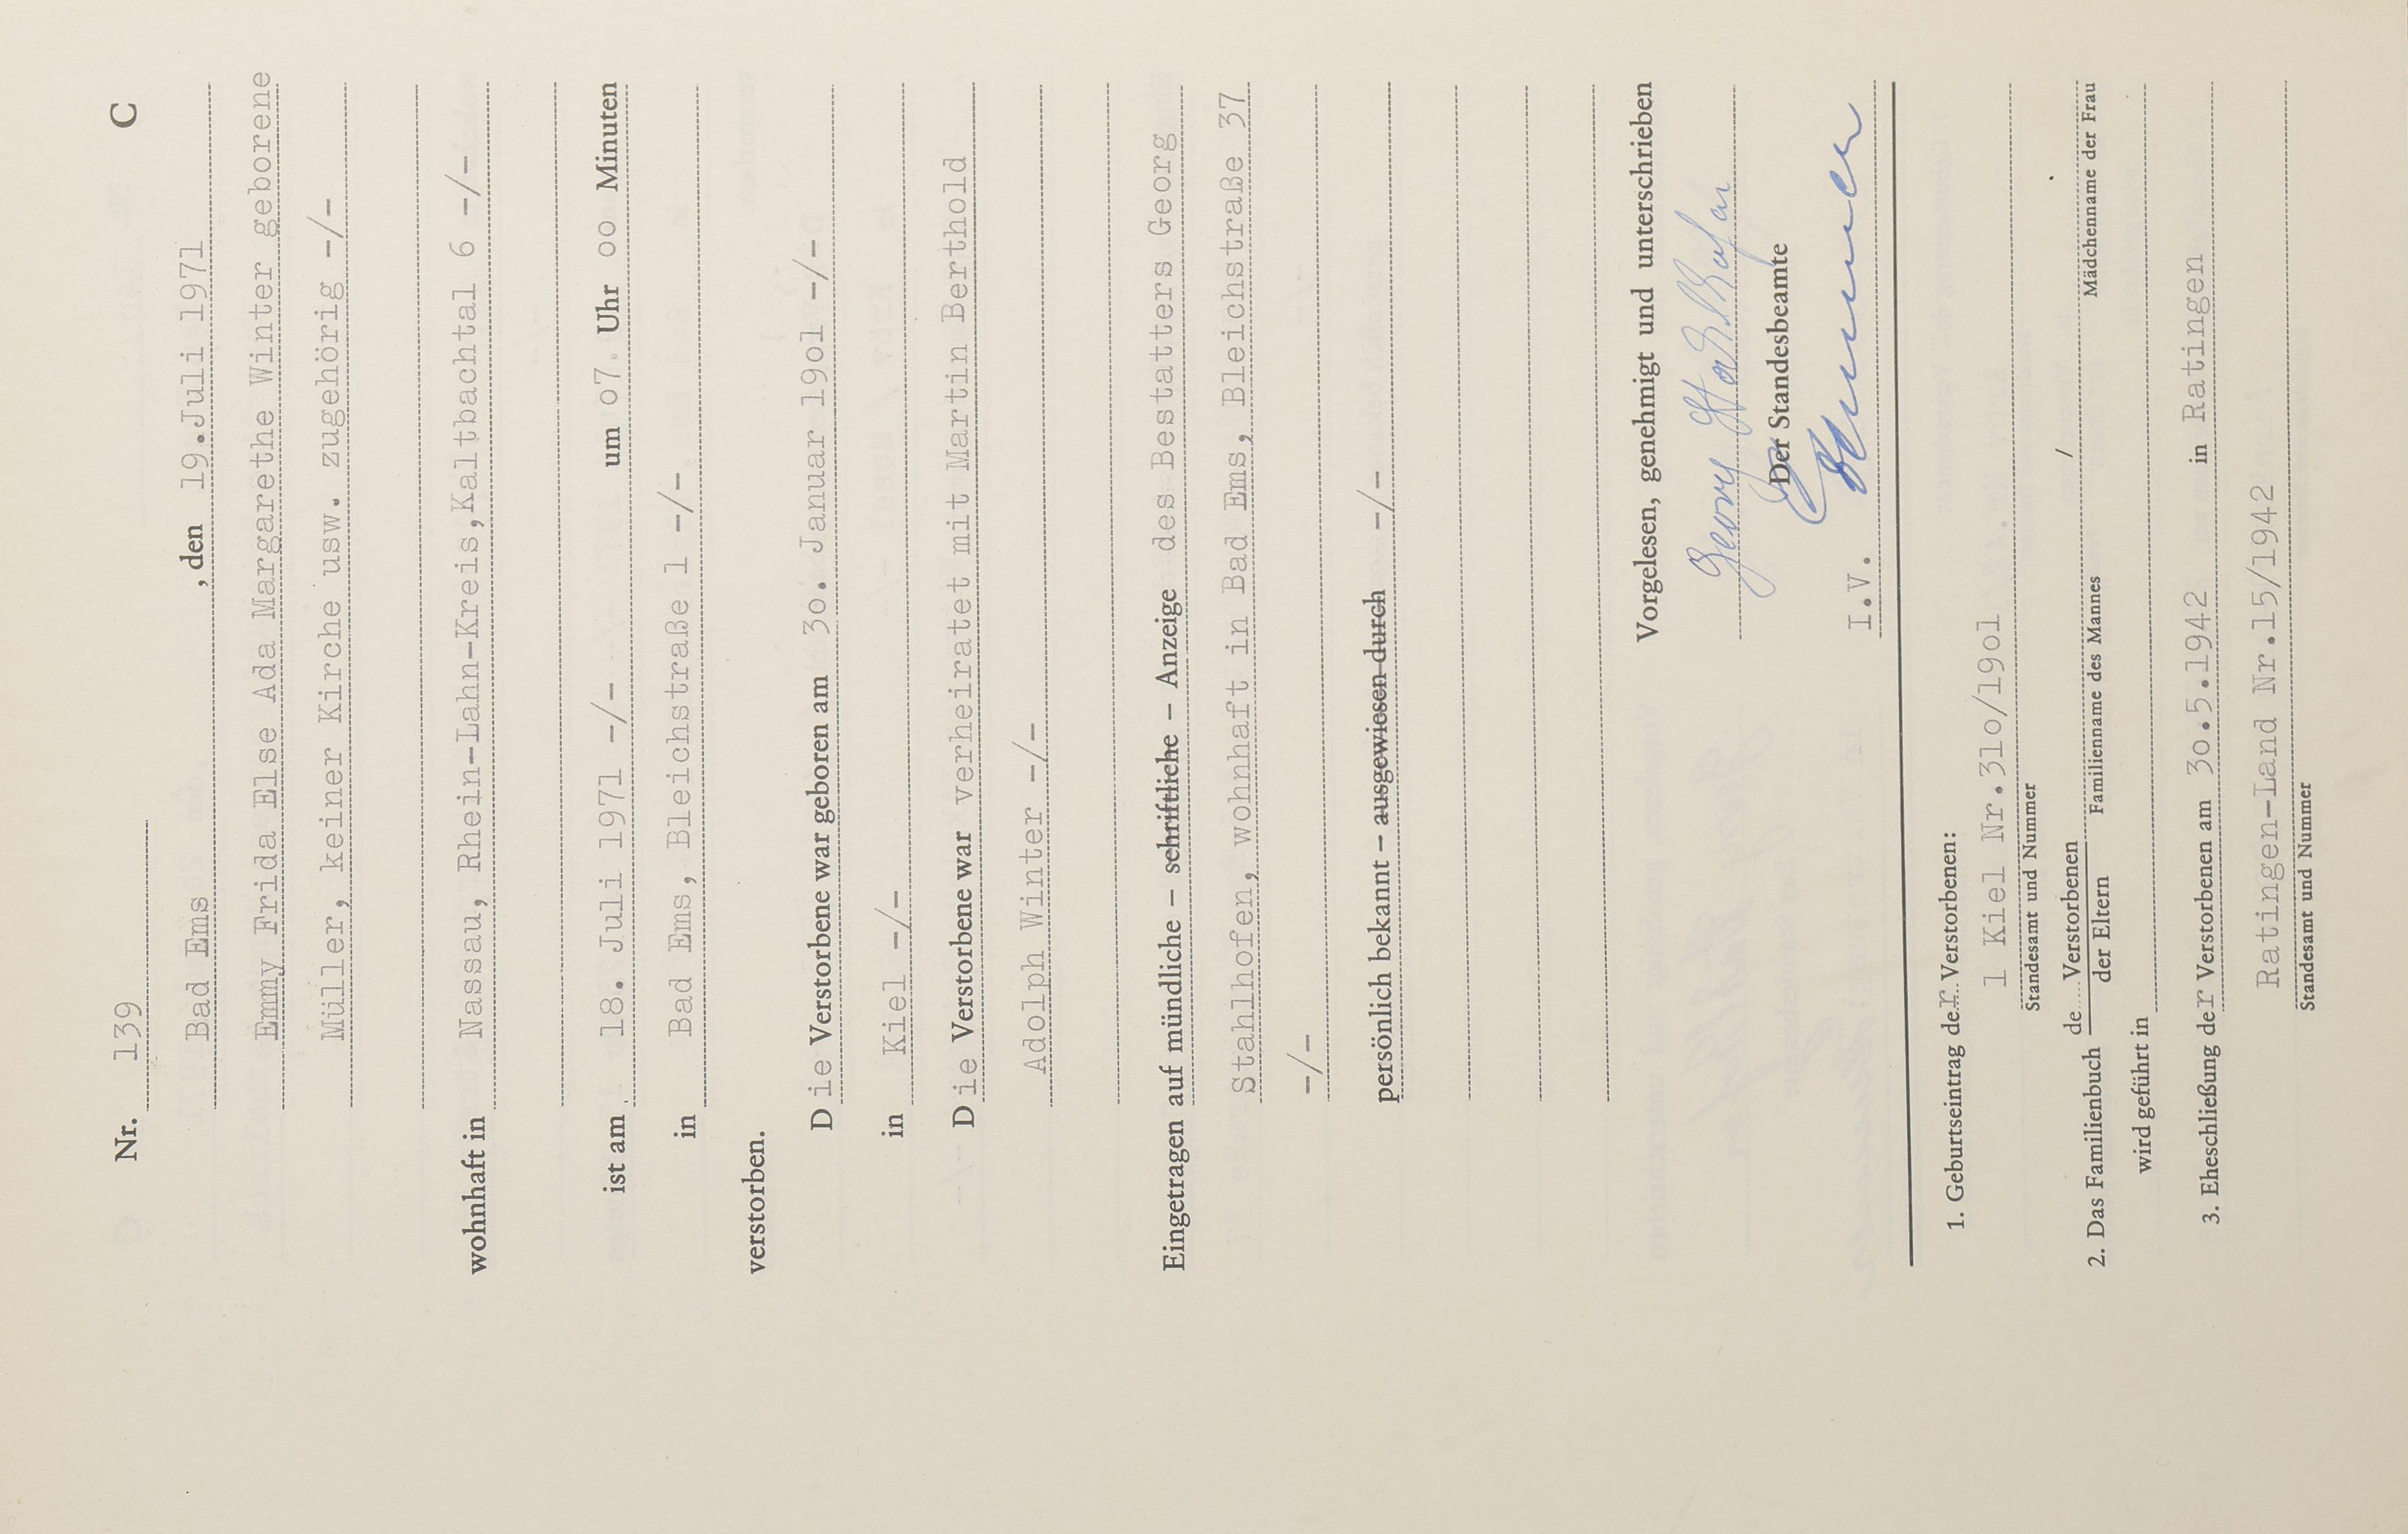 Nr. 139 C
Bad Ems , den 19.Juli 1971
Emmy Frida Else Ada Margarethe Winter geborene
Müller, keiner Kirche usw. zugehörig -/-
wohnhaft in Nassau, Rhein-Lahn-Kreis,Kaltbachtal 6 -/-
ist am 18. Juli 1971 -/- um o7. Uhr oo Minuten
in Bad Ems, Bleichstraße 1 -/-
verstorben.
Die Verstorbene war geboren am 3o. Januar 19o1 -/-
in Kiel -/-
Die Verstorbene war verheiratet mit Martin Berthold
Adolph Winter -/-
Eingetragen auf mündliche – schriftliche – Anzeige des Bestatters Georg
Stahlhofen, wohnhaft in Bad Ems, Bleichstraße 37
-/-
persönlich bekannt – ausgewiesen durch -/-
Vorgelesen, genehmigt und unterschrieben
Georg Stahlhofen
Der Standesbeamte
I.V.
1. Geburtseintrag der Verstorbenen:
1 Kiel Nr.31o/19o1
Standesamt und Nummer
2. Das Familienbuch de.... Verstorbenen /
der Eltern Familienname des Mannes Mädchenname der Frau
wird geführt in
3. Eheschließung der Verstorbenen am 3o.5.1942 in Ratingen
Ratingen-Land Nr.15/1942
Standesamt und Nummer